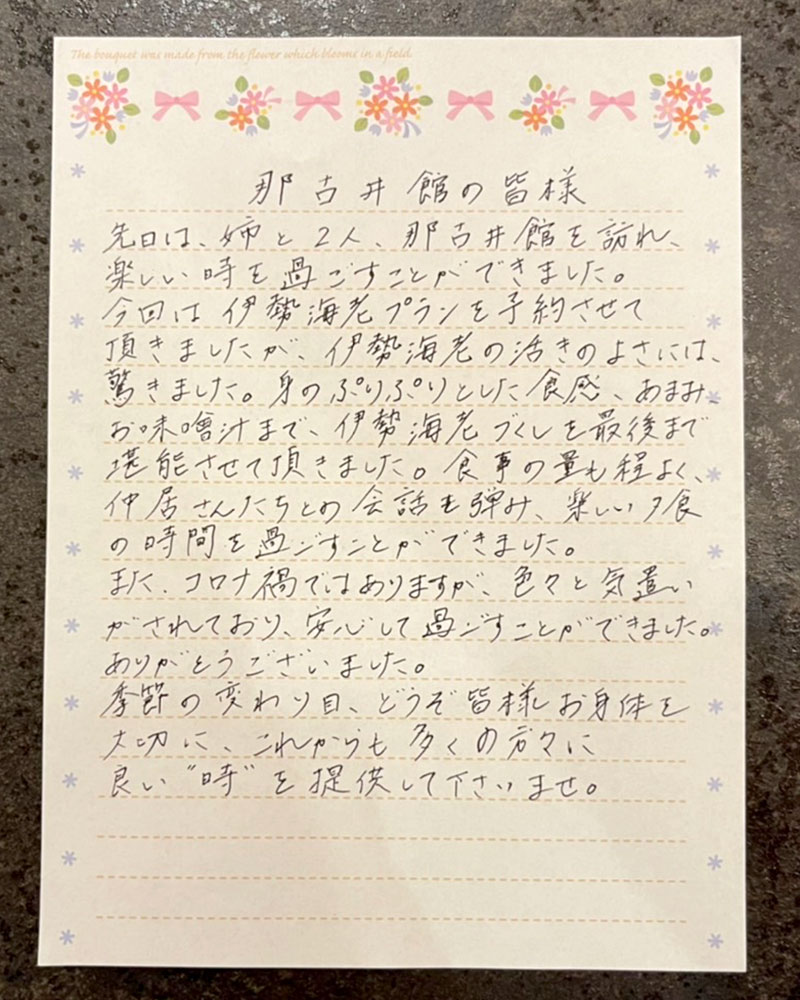 The bouquet was made from the flower which blooms in a field.
那古井館の皆様
先日は、姉と2人、那古井館を訪れ、
楽しい時を過ごすことができました。
今回は伊勢海老プランを予約させて
頂きましたが、伊勢海老の活きのよさには、
驚きました。身のぷりぷりとした食感、あまみ、
お味噌汁まで、伊勢海老づくしを最後まで
堪能させて頂きました。食事の量も程よく、
仲居さんたちとの会話も弾み、楽しい夕食
の時間を過ごすことができました。
また、コロナ禍ではありますが、色々と気遣い
がされており、安心して過ごすことができました。
ありがとうございました。
季節の変わり目、どうぞ皆様お身体を
大切に、これからも多くの方々に
良い"時"を提供して下さいませ。